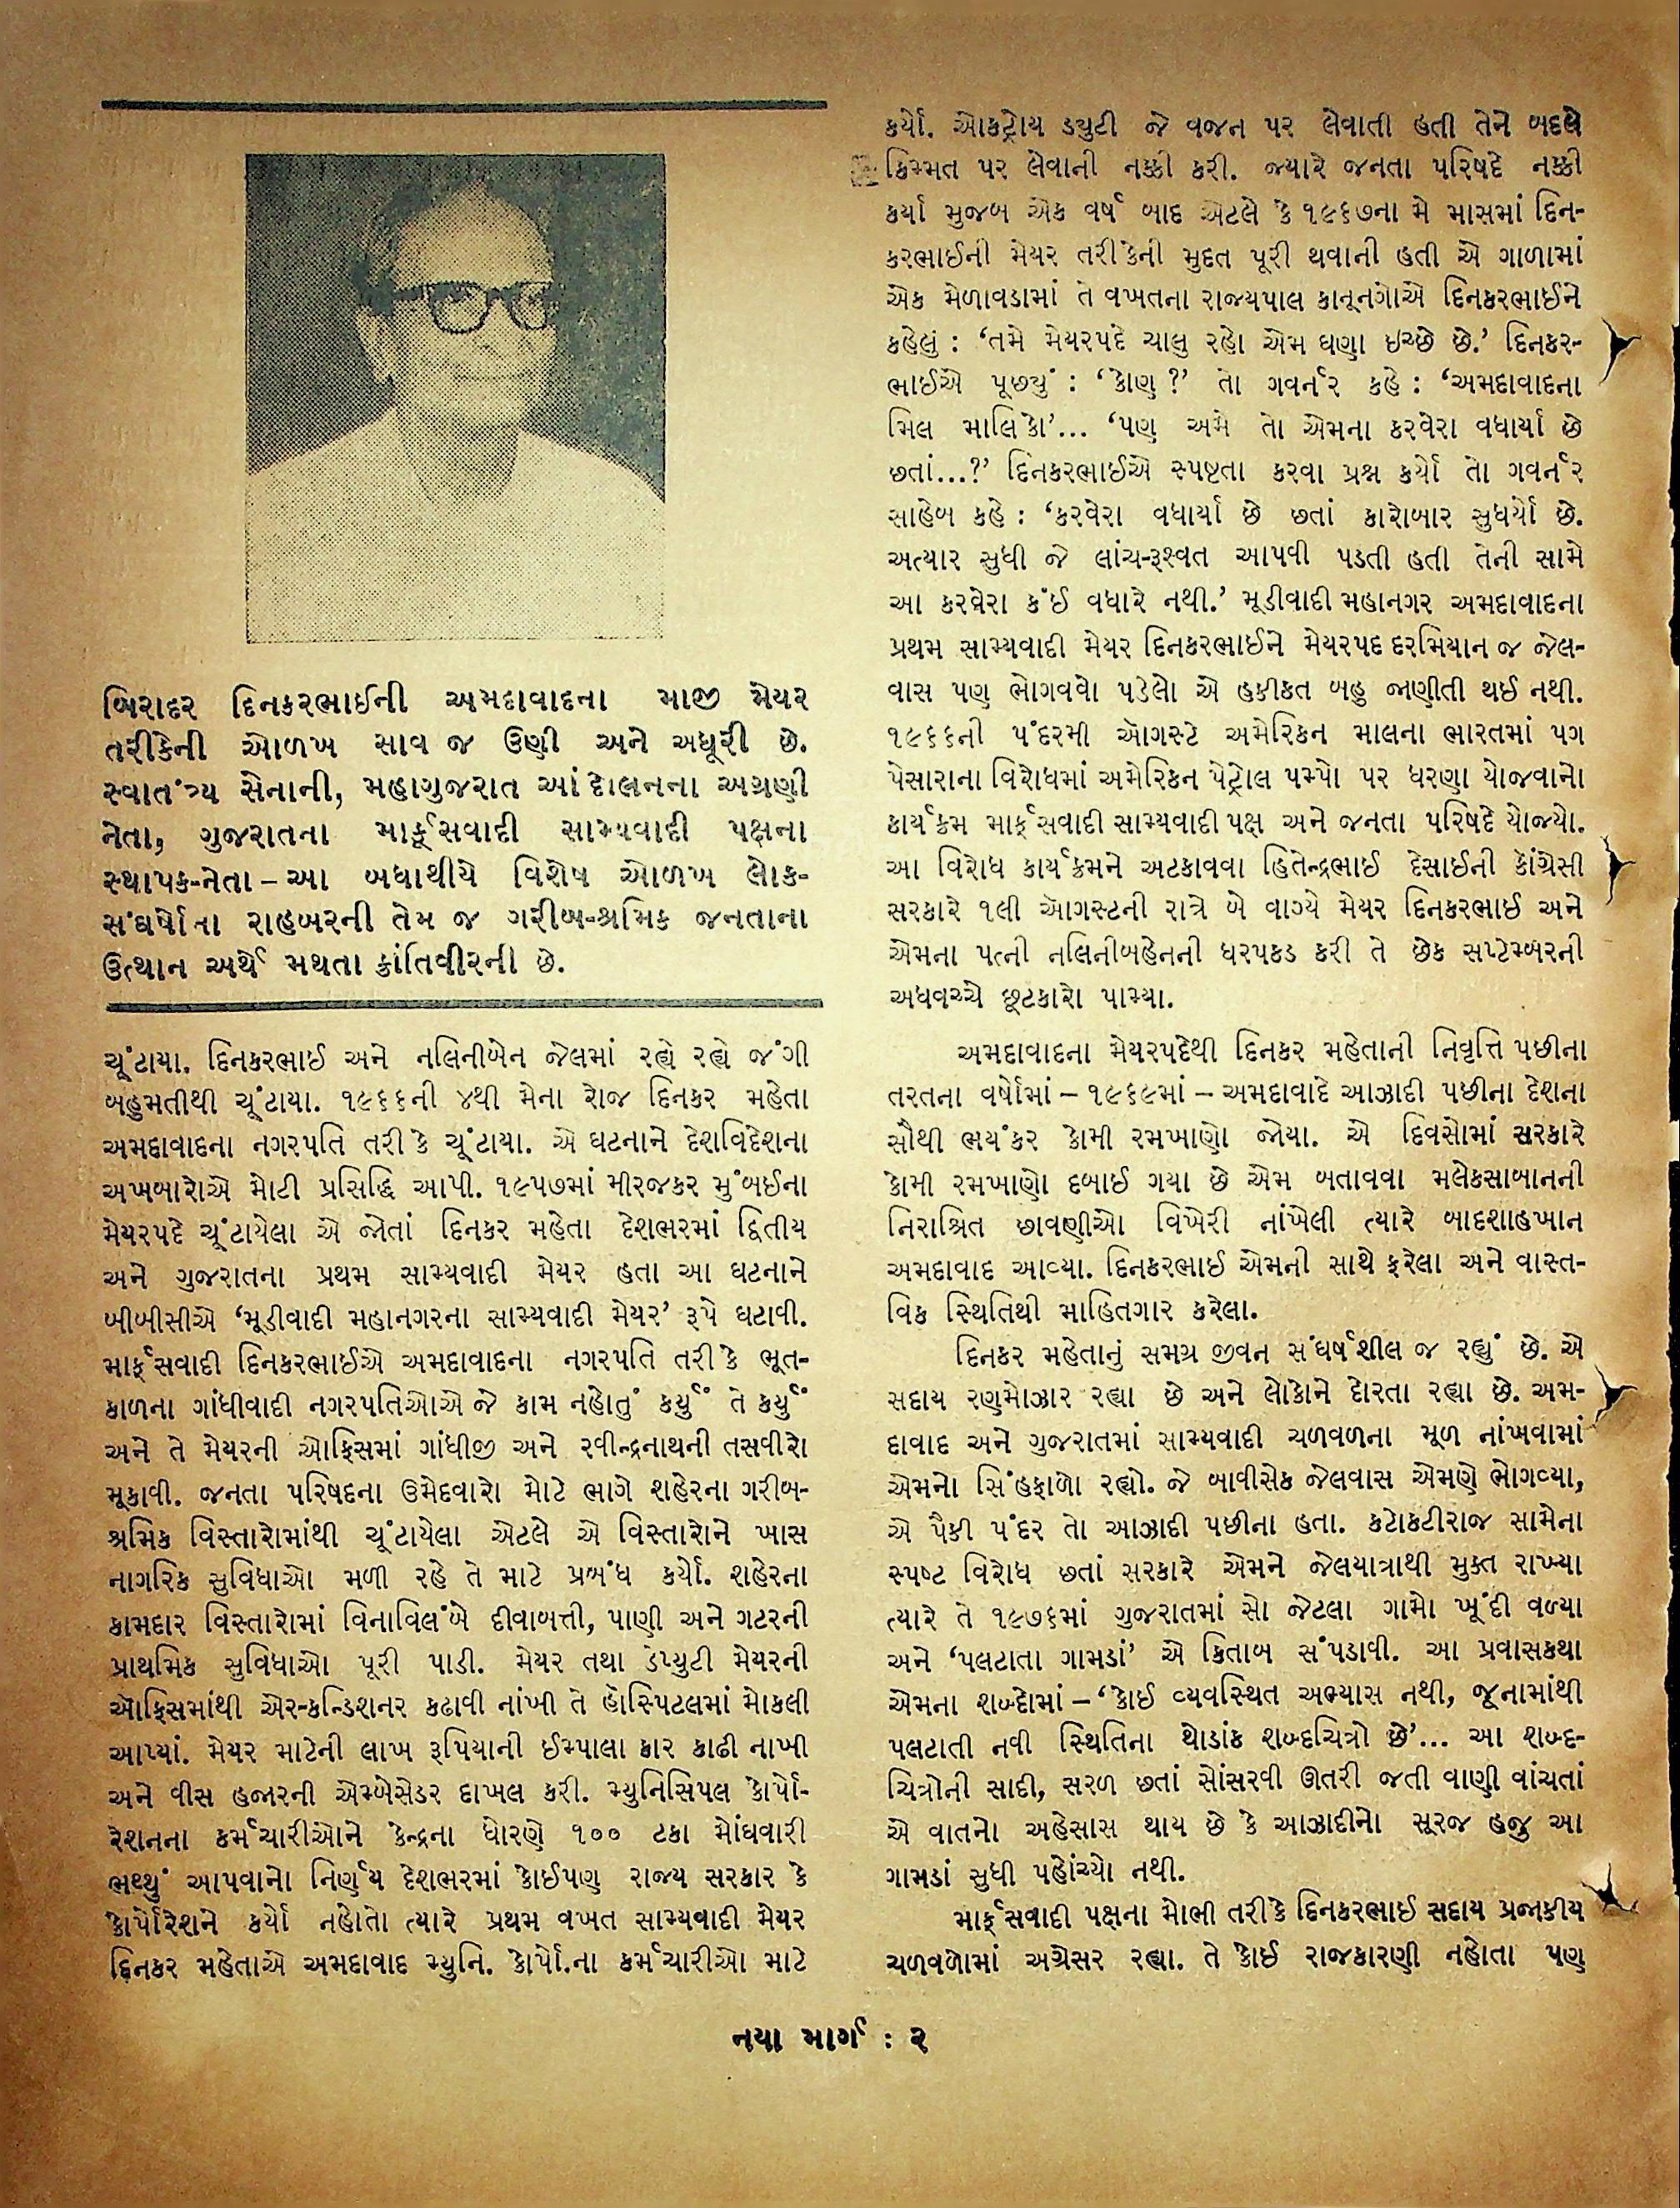 બિરાદર દિનકરભાઈની અમદાવાદના માજી મેયર
તરીકેની ઓળખ સાવ જ ઉણી અને અધૂરી છે.
સ્વાતંત્ર્ય સૈનાની, મહાગુજરાત આંદોલનના અગ્રણી
નેતા, ગુજરાતના માર્ક્સવાદી સામ્યવાદી પક્ષના
સ્થાપક-નેતા – આ બધાથીયે વિશેષ ઓળખ લોક-
સંઘર્ષોના રાહબરની તેમ જ ગરીબ-શ્રમિક જનતાના
ઉત્થાન અર્થે મથતા ક્રાંતિવીરની છે.
ચૂંટાયા. દિનકરભાઈ અને નલિનીબેન જેલમાં રહ્યે રહ્યે જંગી
બહુમતીથી ચૂંટાયા. ૧૯૬૬ની ૪થી મેના રોજ દિનકર મહેતા
અમદાવાદના નગરપતિ તરીકે ચૂંટાયા. એ ઘટનાને દેશવિદેશના
અખબારોએ મોટી પ્રસિદ્ધિ આપી. ૧૯૫૭માં મીરજકર મુંબઈના
મેયરપદે ચૂંટાયેલા એ જોતાં દિનકર મહેતા દેશભરમાં દ્વિતીય
અને ગુજરાતના પ્રથમ સામ્યવાદી મેયર હતા આ ઘટનાને
બીબીસીએ ‘મૂડીવાદી મહાનગરના સામ્યવાદી મેયર’ રૂપે ઘટાવી.
માર્ક્સવાદી દિનકરભાઈએ અમદાવાદના નગરપતિ તરીકે ભૂત-
કાળના ગાંધીવાદી નગરપતિઓએ જે કામ નહોતું કર્યું તે કર્યું
અને તે મેયરની ઓફિસમાં ગાંધીજી અને રવીન્દ્રનાથની તસવીરો
મૂકાવી. જનતા પરિષદના ઉમેદવારો મોટે ભાગે શહેરના ગરીબ-
શ્રમિક વિસ્તારોમાંથી ચૂંટાયેલા એટલે એ વિસ્તારોને ખાસ
નાગરિક સુવિધાઓ મળી રહે તે માટે પ્રબંધ કર્યો. શહેરના
કામદાર વિસ્તારોમાં વિનાવિલંબે દીવાબત્તી, પાણી અને ગટરની
પ્રાથમિક સુવિધાઓ પૂરી પાડી. મેયર તથા ડેપ્યુટી મેયરની
ઓફિસમાંથી એર-કન્ડિશનર કઢાવી નાંખી તે હૉસ્પિટલમાં મોકલી
આપ્યાં. મેયર માટેની લાખ રૂપિયાની ઈમ્પાલા કાર કાઢી નાખી
અને વીસ હજારની એમ્બેસેડર દાખલ કરી. મ્યુનિસિપલ કોર્પો-
રેશનના કર્મચારીઓને કેન્દ્રના ધોરણે ૧૦૦ ટકા મોંઘવારી
ભથ્થું આપવાનો નિર્ણય દેશભરમાં કોઈપણ રાજ્ય સરકાર કે
કોર્પોરેશને કર્યો નહોતો ત્યારે પ્રથમ વખત સામ્યવાદી મેયર
દિનકર મહેતાએ અમદાવાદ મ્યુનિ. કોર્પો.ના કર્મચારીઓ માટે
કર્યો. ઓકટ્રોય ડ્યુટી જે વજન પર લેવાતી હતી તેને બદલે
કિમ્મત પર લેવાની નક્કી કરી. જ્યારે જનતા પરિષદે નક્કી
કર્યા મુજબ એક વર્ષ બાદ એટલે કે ૧૯૬૭ના મે માસમાં દિન-
કરભાઈની મેયર તરીકેની મુદત પૂરી થવાની હતી એ ગાળામાં
એક મેળાવડામાં તે વખતના રાજ્યપાલ કાનૂનગોએ દિનકરભાઈને
કહેલું : ‘તમે મેયરપદે ચાલુ રહો એમ ઘણા ઇચ્છે છે.’ દિનકર-
ભાઈએ પૂછ્યું : ‘કોણ ?’ તો ગવર્નર કહે : ‘અમદાવાદના
મિલ માલિકો’... ‘પણ અમે તો એમના કરવેરા વધાર્યા છે
છતાં...?’ દિનકરભાઈએ સ્પષ્ટતા કરવા પ્રશ્ન કર્યો તો ગવર્નર
સાહેબ કહે : ‘કરવેરા વધાર્યા છે છતાં કારોબાર સુધર્યો છે.
અત્યાર સુધી જે લાંચ-રૂશ્વત આપવી પડતી હતી તેની સામે
આ કરવેરા કંઈ વધારે નથી.’ મૂડીવાદી મહાનગર અમદાવાદના
પ્રથમ સામ્યવાદી મેયર દિનકરભાઈને મેયરપદ દરમિયાન જ જેલ-
વાસ પણ ભોગવવો પડેલો એ હકીકત બહુ જાણીતી થઈ નથી.
૧૯૬૬ની પંદરમી ઑગસ્ટે અમેરિકન માલના ભારતમાં પગ
પેસારાના વિરોધમાં અમેરિકન પેટ્રોલ પમ્પો પર ધરણા યોજવાનો
કાર્યક્રમ માર્ક્સવાદી સામ્યવાદી પક્ષ અને જનતા પરિષદે યોજ્યો.
આ વિરોધ કાર્યક્રમને અટકાવવા હિતેન્દ્રભાઈ દેસાઈની કોંગ્રેસી
સરકારે ૧લી ઑગસ્ટની રાત્રે બે વાગ્યે મેયર દિનકરભાઈ અને
એમના પત્ની નલિનીબહેનની ધરપકડ કરી તે છેક સપ્ટેમ્બરની
અધવચ્ચે છૂટકારો પામ્યા.
અમદાવાદના મેયરપદેથી દિનકર મહેતાની નિવૃત્તિ પછીના
તરતના વર્ષોમાં – ૧૯૬૯માં – અમદાવાદે આઝાદી પછીના દેશના
સૌથી ભયંકર કોમી રમખાણો જોયા. એ દિવસોમાં સરકારે
કોમી રમખાણો દબાઈ ગયા છે એમ બતાવવા મલેકસાબાનની
નિરાશ્રિત છાવણીઓ વિખેરી નાંખેલી ત્યારે બાદશાહખાન
અમદાવાદ આવ્યા. દિનકરભાઈ એમની સાથે ફરેલા અને વાસ્ત-
વિક સ્થિતિથી માહિતગાર કરેલા.
દિનકર મહેતાનું સમગ્ર જીવન સંઘર્ષશીલ જ રહ્યું છે. એ
સદાય રણમોઝાર રહ્યા છે અને લોકોને દોરતા રહ્યા છે. અમ-
દાવાદ અને ગુજરાતમાં સામ્યવાદી ચળવળના મૂળ નાંખવામાં
એમનો સિંહફાળો રહ્યો. જે બાવીસેક જેલવાસ એમણે ભોગવ્યા,
એ પૈકી પંદર તો આઝાદી પછીના હતા. કટોકટીરાજ સામેના
સ્પષ્ટ વિરોધ છતાં સરકારે એમને જેલયાત્રાથી મુક્ત રાખ્યા
ત્યારે તે ૧૯૭૬માં ગુજરાતમાં સો જેટલા ગામો ખૂંદી વળ્યા
અને ‘પલટાતા ગામડાં’ એ કિતાબ સંપડાવી. આ પ્રવાસકથા
એમના શબ્દોમાં – ‘કોઈ વ્યવસ્થિત અભ્યાસ નથી, જૂનામાંથી
પલટાતી નવી સ્થિતિના થોડાંક શબ્દચિત્રો છે’... આ શબ્દ-
ચિત્રોની સાદી, સરળ છતાં સોંસરવી ઊતરી જતી વાણી વાંચતાં
એ વાતનો અહેસાસ થાય છે કે આઝાદીનો સૂરજ હજુ આ
ગામડાં સુધી પહોંચ્યો નથી.
માર્ક્સવાદી પક્ષના મોભી તરીકે દિનકરભાઈ સદાય પ્રજાકીય
ચળવળોમાં અગ્રેસર રહ્યા. તે કોઈ રાજકારણી નહોતા પણ
નયા માર્ગ : ૨